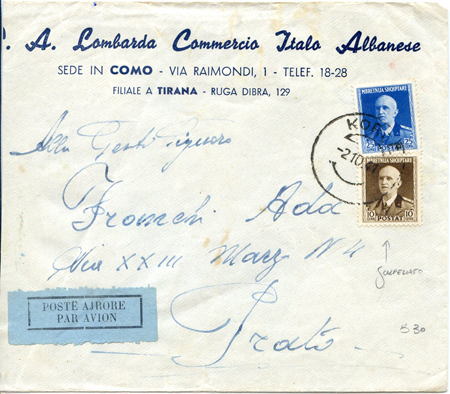 . A. Lombarda Commercio Italo Albanese
SEDE IN COMO - VIA RAIMONDI, 1 - TELEF. 18-28
FILIALE A TIRANA - RUGA DIBRA, 129
MBRETNIJA SHQIPTARE
25 25
KOR
-2.10.4
MBRETNIJA SHQIPTARE
10 POSTAT 10
Alla Gent. Signora
Ada
Via XXIII Marzo N 4
Prato
POSTË AJRORE
PAR AVION
530